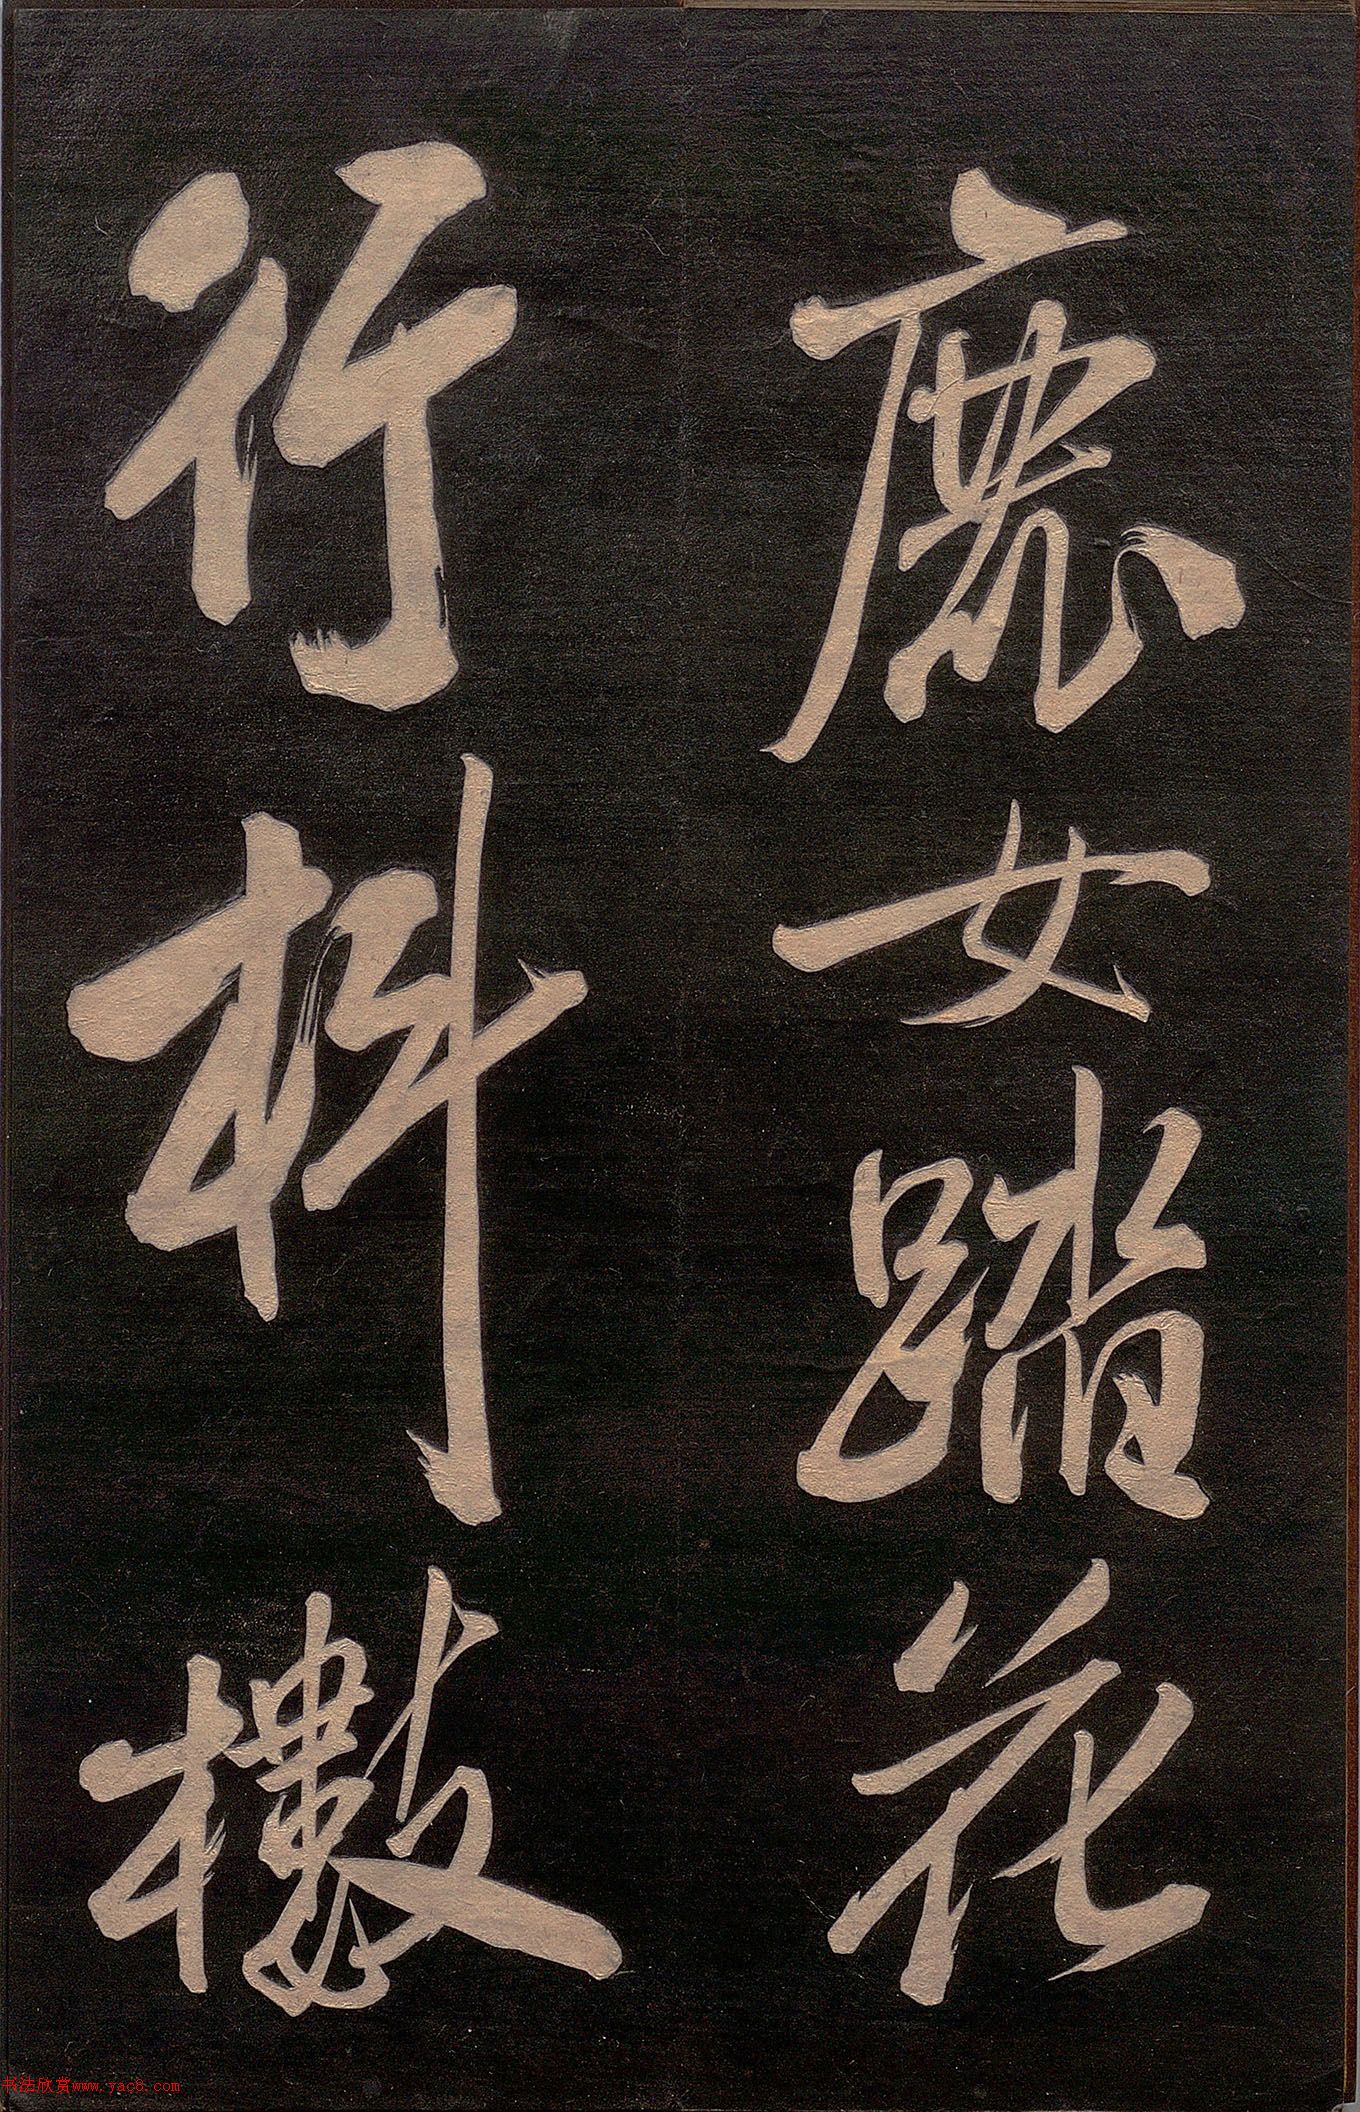 麗女踏花
行抖擻
书法欣赏www.yac8.com